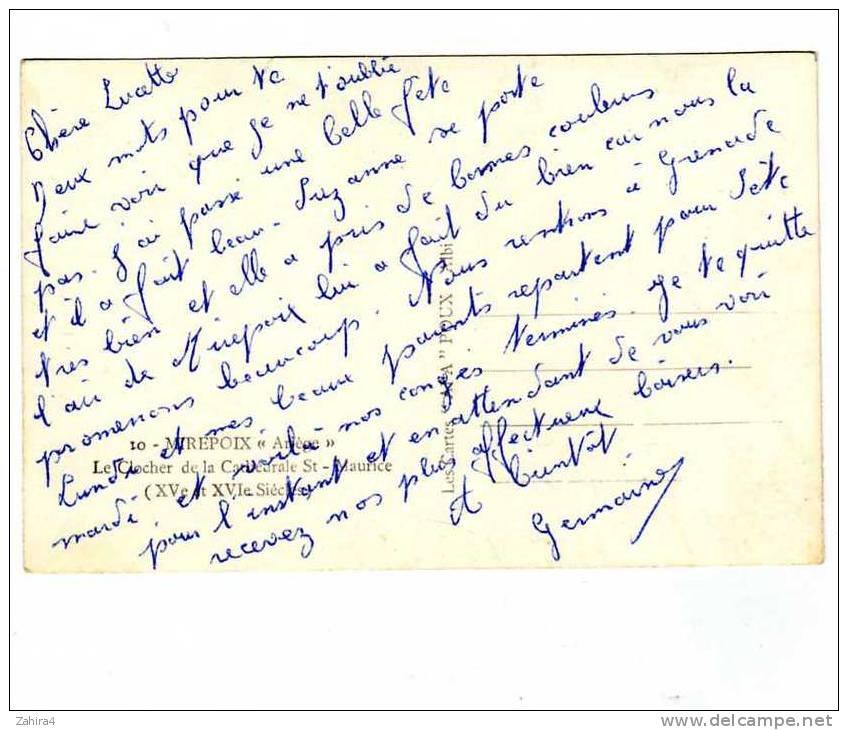 Chère Lucette
Deux mots pour te
faire voir que je ne t'oublie
pas. J'ai passé une belle fête
et il a fait beau. Suzanne se porte
très bien et elle a pris de bonnes couleurs
l'air de Mirepoix lui a fait du bien car nous la
promenons beaucoup. Nous rentrons à Grenade
Lundi et mes beaux parents repartent pour Sète
mardi et voilà nos congés terminés. Je te quitte
pour l'instant et en attendant de vous voir
recevez nos plus affectueux baisers.
A bientôt
Germaine
10 - MIREPOIX « Ariège »
Le Clocher de la Cathédrale St - Maurice
(XVe et XVIe Siécles)
Les Cartes " POUX Albi
Zahira4